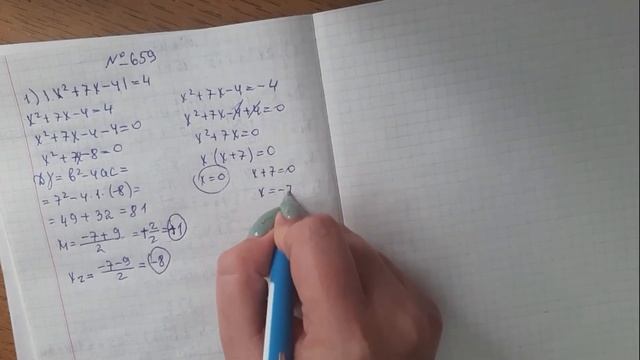 №659
1) |x²+7x-4|=4
x²+7x-4=4
x²+7x-4-4=0
x²+7x-8=0
D=b²-4ac=
=7²-4·1·(-8)=
=49+32=81
x₁=(-7+9)/2=+2/2=+1
x₂=(-7-9)/2=-8
x²+7x-4=-4
x²+7x-4+4=0
x²+7x=0
x(x+7)=0
x=0 x+7=0
x=-7